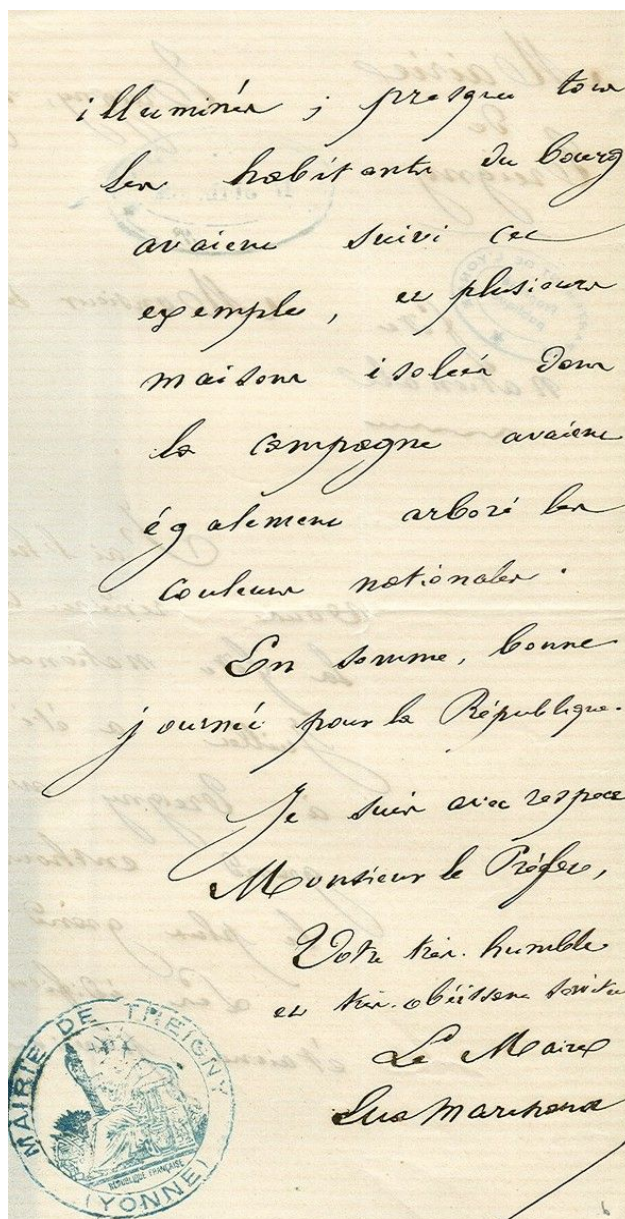 illuminés ; presque tous
les habitants du bourg
avaient suivi cet
exemple, et plusieurs
maisons isolées dans
la campagne avaient
également arboré les
couleurs nationales.
En somme, bonne
journée pour la République.
Je suis avec respect
Monsieur le Préfet,
Votre très humble
et très obéissant serviteur
Le Maire
MAIRIE DE TREIGNY
RÉPUBLIQUE FRANÇAISE
(YONNE)